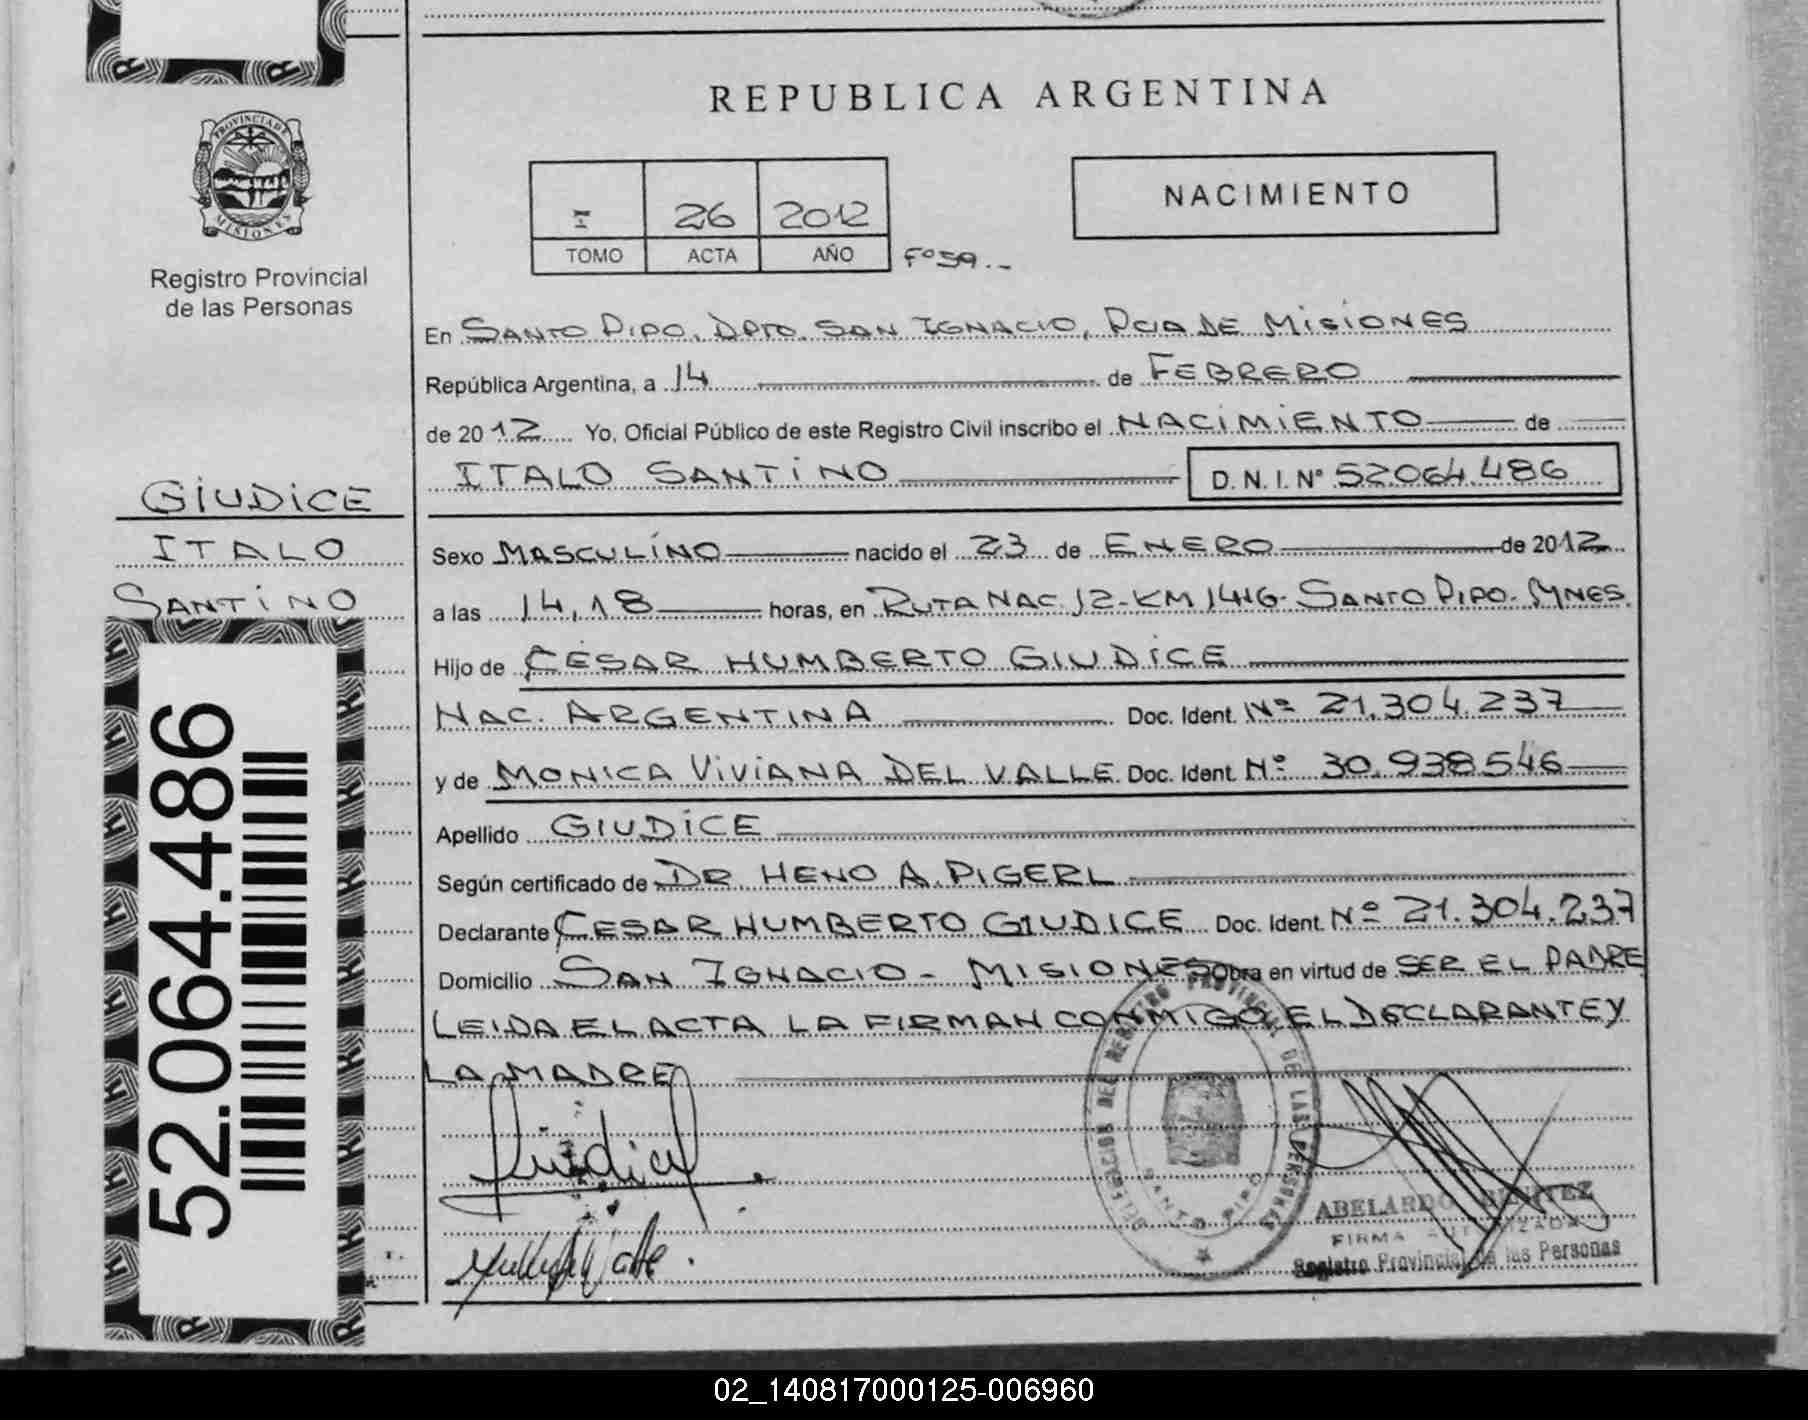 PROVINCIA DE
MISIONES
Registro Provincial
de las Personas
GIUDICE
ITALO
SANTINO
52.064.486
REPUBLICA ARGENTINA
I 26 2012
TOMO ACTA AÑO Fº59.-
NACIMIENTO
En SANTO PIPO, DPTO. SAN IGNACIO, PCIA DE MISIONES
República Argentina, a 14 de FEBRERO
de 2012 Yo, Oficial Público de este Registro Civil inscribo el NACIMIENTO de
ITALO SANTINO D.N.I.Nº 52.064.486
Sexo MASCULINO nacido el 23 de ENERO de 2012
a las 14,18 horas, en RUTA NAC 12-KM 1416- SANTO PIPO- MNES.
Hijo de CESAR HUMBERTO GIUDICE
NAC. ARGENTINA Doc. Ident. Nº 21.304.237
y de MONICA VIVIANA DEL VALLE Doc. Ident. Nº 30.938546
Apellido GIUDICE
Según certificado de DR HENO A. PIGERL
Declarante CESAR HUMBERTO GIUDICE Doc. Ident. Nº 21.304.237
Domicilio SAN IGNACIO - MISIONES Obra en virtud de SER EL PADRE
LEIDA EL ACTA LA FIRMAN CONMIGO EL DECLARANTE Y
LA MADRE
DEL REGISTRO PROVINCIAL DE LAS PERSONAS
SANTO PIPO
ABELARDO BENITEZ
FIRMA AUTORIZADA
Registro Provincial de las Personas
02_140817000125-006960